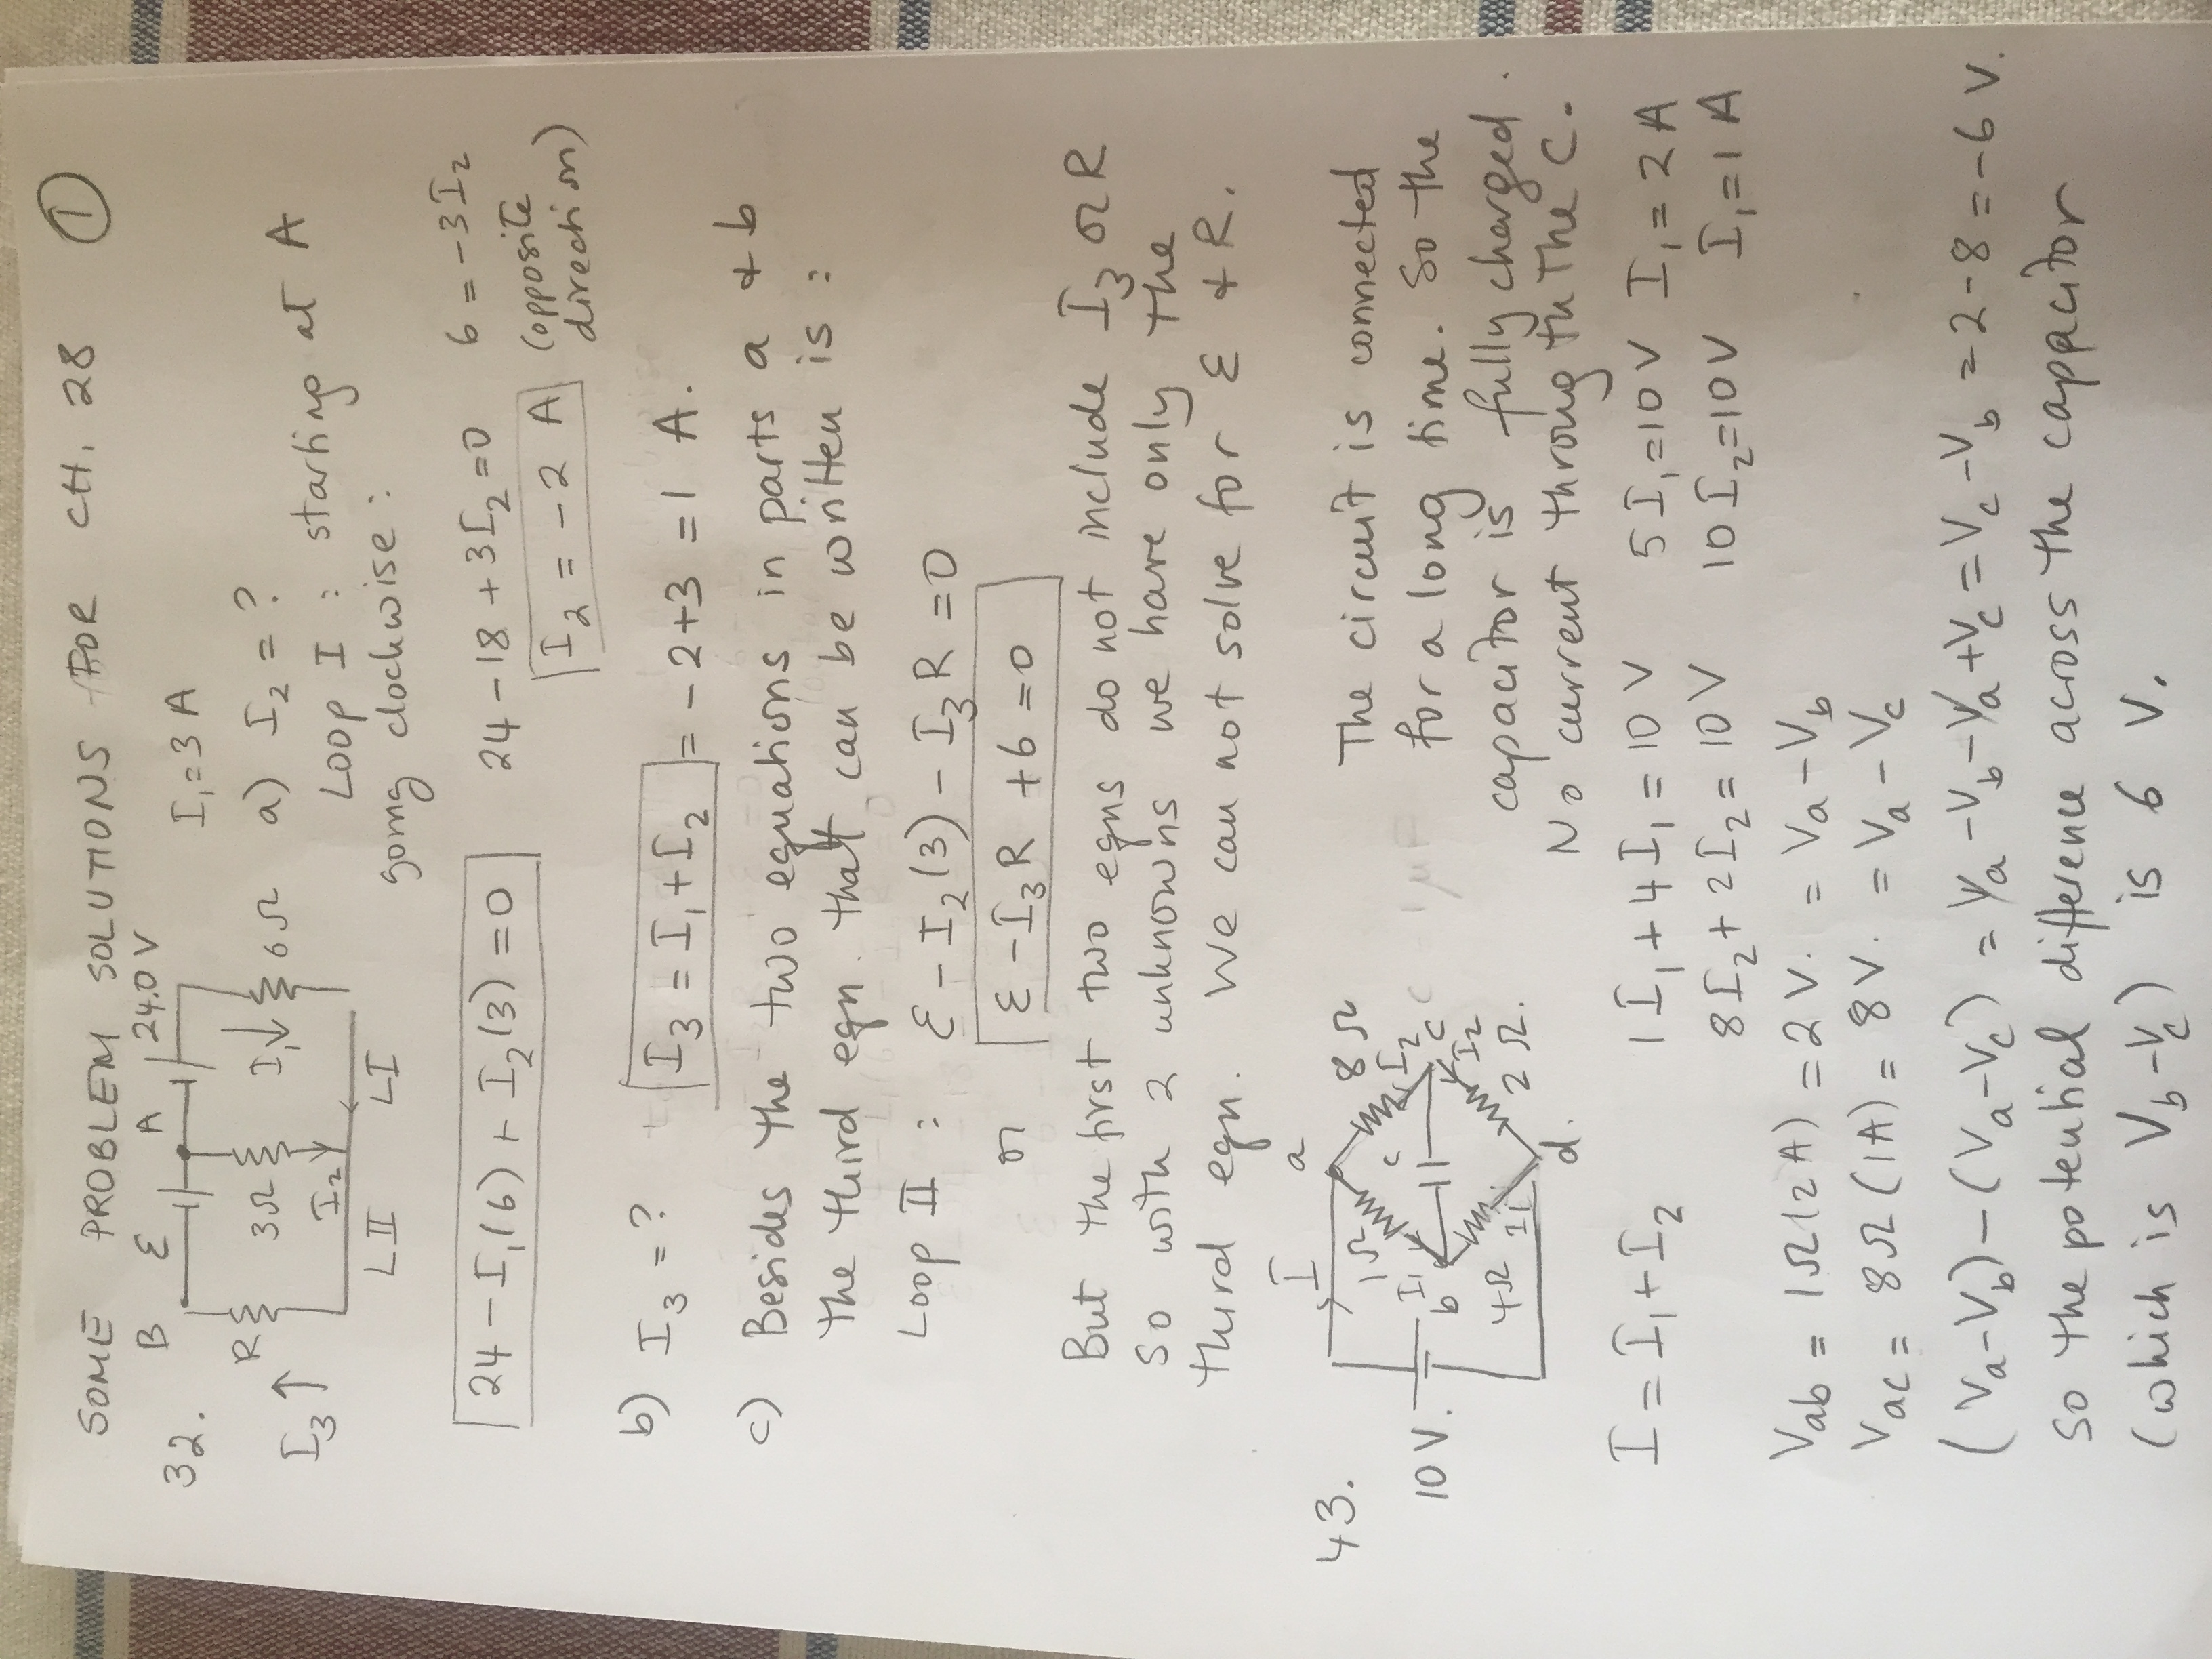 SOME PROBLEM SOLUTIONS FOR CH. 28 1
32.
B ℰ A 24.0 V
R 3Ω I₁↓ 6Ω
I₃↑ I₂
LII LI
I₁=3 A
a) I₂ = ?
Loop I : starting at A
going clockwise :
24 – I₁(6) + I₂(3) = 0 24 – 18 + 3I₂ = 0 6 = -3I₂
I₂ = -2 A (opposite direction)
b) I₃ = ? I₃ = I₁ + I₂ = -2+3 = 1 A.
c) Besides the two equations in parts a & b
the third eqn. that can be written is :
Loop II : ℰ – I₂(3) – I₃R = 0
or ℰ – I₃R + 6 = 0
But the first two eqns do not include I₃ or R
So with 2 unknowns we have only the
third eqn. We can not solve for ℰ & R.
43.
I a
1Ω 8Ω
I₁ c I₂
10 V. b c
4Ω I₁ I₂ 2Ω.
d.
The circuit is connected
for a long time. So the
capacitor is fully charged.
No current throug th the C.
I = I₁ + I₂ 1I₁ + 4I₁ = 10 V 5I₁=10 V I₁ = 2 A
8I₂ + 2I₂ = 10 V 10I₂=10V I₁=1 A
Vab = 1Ω(2A) = 2 V. = Va – Vb
Vac = 8Ω(1A) = 8 V. = Va – Vc
(Va–Vb) – (Va–Vc) = Va –Vb –Va +Vc = Vc –Vb = 2-8 = -6 V.
So the potential difference across the capacitor
(which is Vb–Vc) is 6 V.